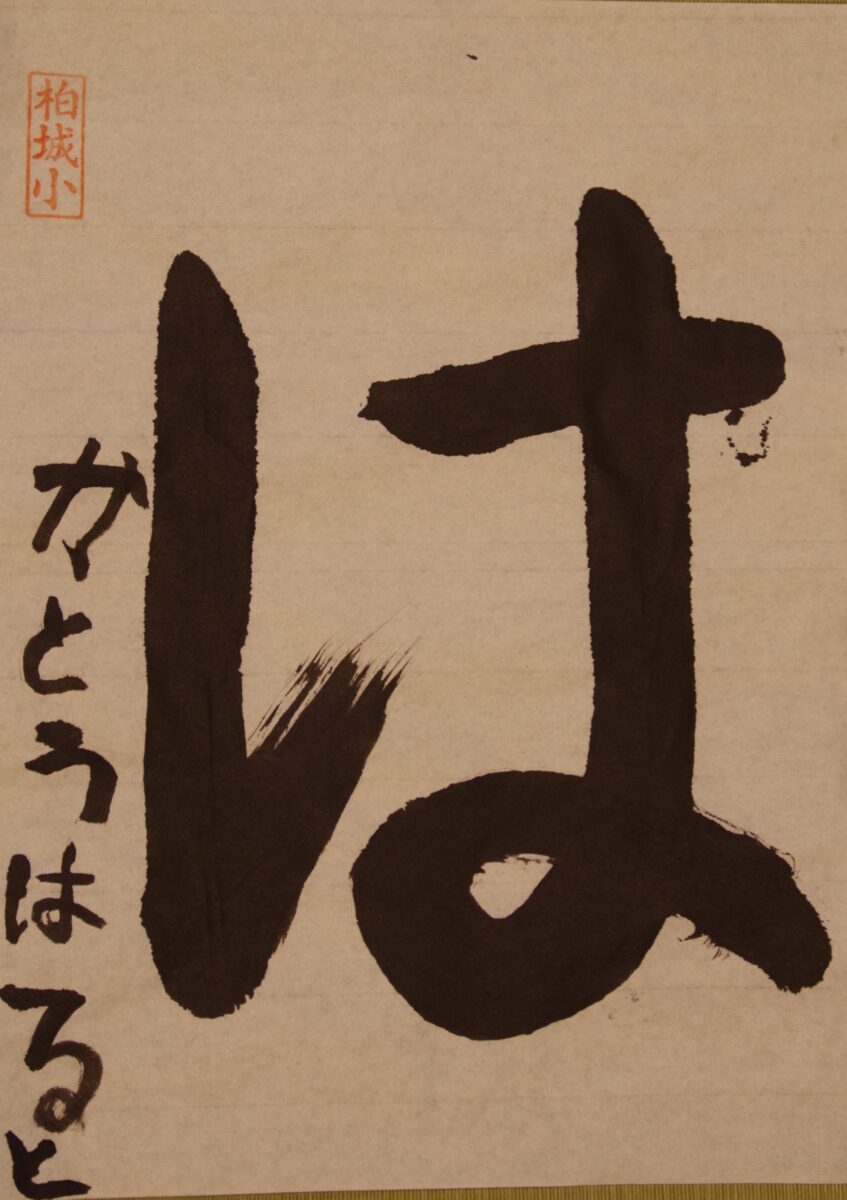 は
柏城小
かとうはると